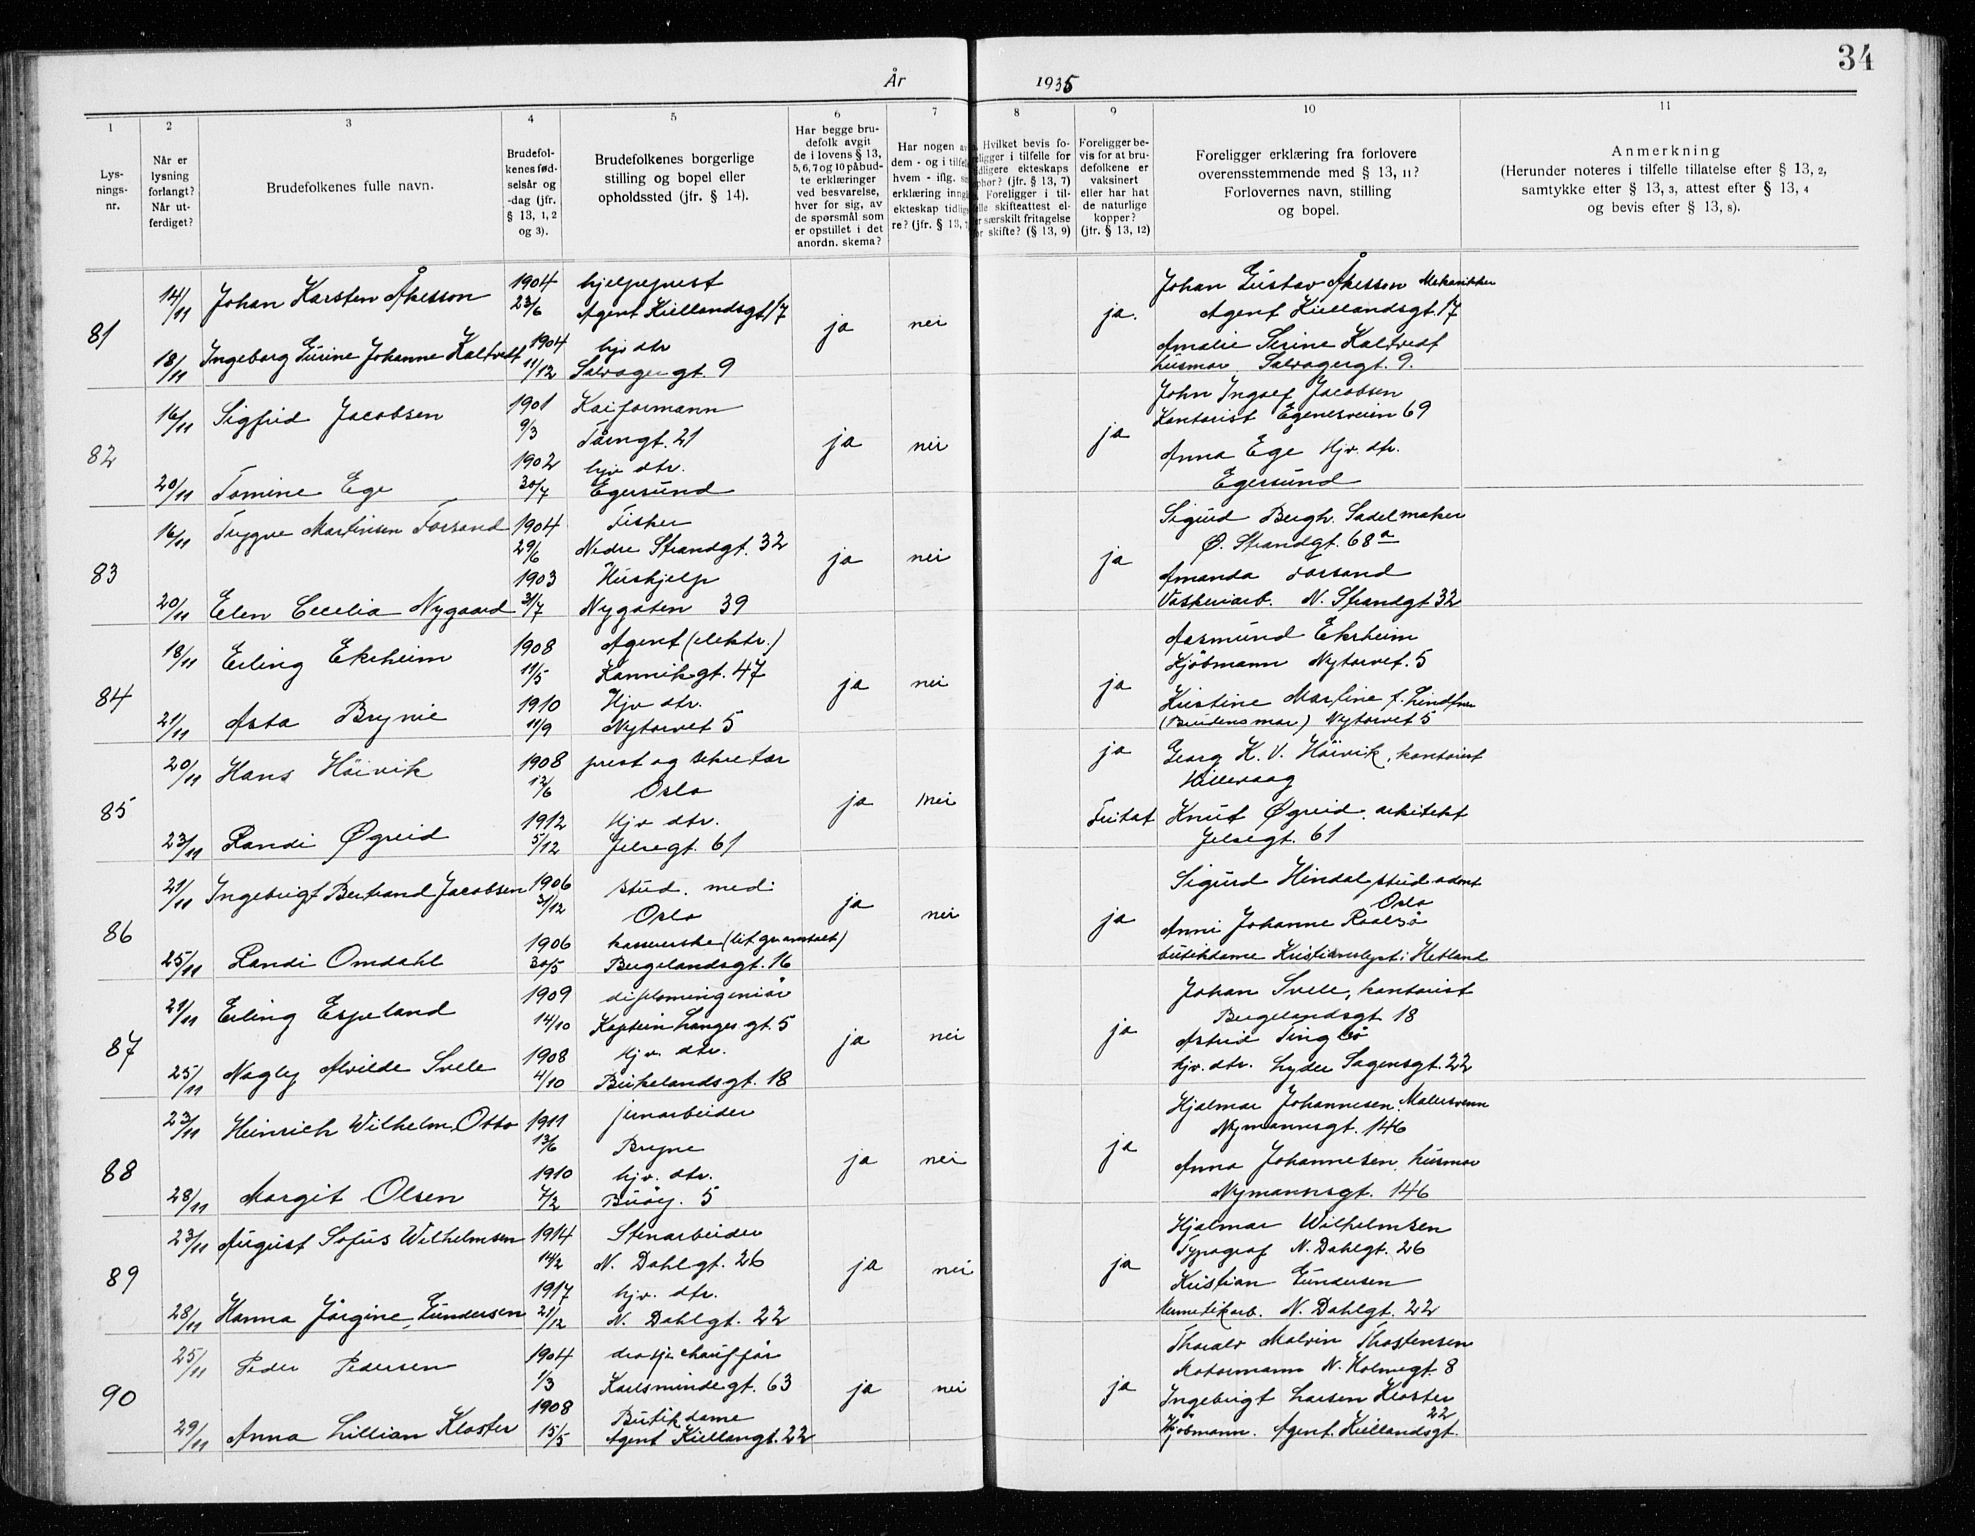 34
År 1935
1 2 3 4 5 6 7 8 9 10 11
Lys-
nings-
nr.
Når er
lysning
forlangt?
Når ut-
ferdiget?
Brudefolkenes fulle navn.
Brudefol-
kenes fød-
selsår og
-dag (jfr.
§ 13, 1, 2
og 3).
Brudefolkenes borgerlige
stilling og bopel eller
opholdssted (jfr. § 14).
Har begge bru-
defolk avgit
de i lovens § 13,
5, 6, 7 og 10 påbud-
te erklæringer
ved besvarelse,
hver for sig, av
de spørsmål som
er opstillet i det
anordn. skema?
Har nogen av
dem - og i tilfelle
hvem - iflg.
erklæring inngå
ekteskap tidlig
re? (jfr. § 13,
Hvilket bevis fo-
religger i tilfelle for
tidligere ekteskaps
ophør? (jfr. § 13, 7)
Foreligger i til-
felle skifteattest el-
er særskilt fritagelse
for skifte? (§ 13, 9)
Foreligger be-
vis for at bru-
defolkene er
vaksinert
eller har hat
de naturlige
kopper?
(jfr. § 13, 12)
Foreligger erklæring fra forlovere
overensstemmende med § 13, 11?
Forlovernes navn, stilling
og bopel.
Anmerkning
(Herunder noteres i tilfelle tillatelse efter § 13, 2,
samtykke efter § 13, 3, attest efter § 13, 4
og bevis efter § 13, 8).
81
14/11 Johan Karsten Åkesson 1904 23/6 hjelpeprest
Agent Kiellandsgt. 17
ja nei ja.
Johan Gustav Åkesson Mekaniker
Agent Kiellandsgt. 17
18/11 Ingeborg Surine Johanne Kaltvedt 1904 11/12 hjv dtr
Salvagergt. 9
Amalie Serine Kaltvedt
husmor Salvagergt. 9.
82
16/11 Sigfrid Jacobsen 1901 9/3 Kaiformann
Tårngt. 21
ja nei ja
John Ingolf Jacobsen
Kontorist Egenesveien 69
20/11 Tomine Ege 1902 30/7 hjv dtr.
Egersund
Anna Ege Hjv. dtr.
Egersund
83
16/11 Trygve Martinsen Forsand 1904 29/6 Fisker
Nedre Strandgt. 32
ja nei ja
Sigurd Bergh. Sadelmaker
Ø. Strandgt. 68a
20/11 Elen Cecelia Nygaard 1903 31/7 Hushjelp
Nygaten 39
Amanda Forsand
Vaskeriarb. N. Strandgt 32
84
18/11 Erling Ekrheim 1908 11/5 Agent (elektr.)
Kannikgt. 47
ja nei ja
Aasmund Ekrheim
Kjöbmann Nytorvet. 5
21/11 Asta Bryne 1910 11/9 Hjv dtr.
Nytorvet 5
Kristine Martine f.
(Brudens mor) Nytorvet 5
85
20/11 Hans Höivik 1908 12/6 prest og sekretær
Oslo
ja nei ja
Georg K. V. Höivik, kontorist
Hillevaag
23/11 Randi Øgreid 1912 5/12 Hjv dtr.
Jelsegt. 61
Fritat
Knut Øgreid. arkitekt
Jelsegt. 61
86
21/11 Ingebrigt Bertrand Jacobsen 1906 31/12 stud. med.
Oslo
ja nei ja
Sigurd Hindal, stud. odont
Oslo
25/11 Randi Omdahl 1906 30/5
Bergelandsgt. 16
Anni Johanne
butikdame Kristianslyst i Hetland
87
21/11 Erling Espeland 1909 14/10 diplomingeniör
Kaptein Langes gt. 5
ja nei ja
Johan Svele, kontorist
Bergelandsgt 18
25/11 Nagley Alvilde Svele 1908 4/10 Hjv. dtr.
Birkelandsgt. 18
Astrid Tingbö
hjv. dtr. Lyder Sagensgt. 22
88
23/11 Heinrich Wilhelm Otto 1911 13/6 jernarbeider
Bryne
ja nei ja
Hjalmar Johannesen. Malersvenn
Nymannsgt. 146
28/11 Margit Olsen 1910 7/2 hjv. dtr.
Buöy. 5
Anna Johannesen, husmor
Nymannsgt. 146
89
23/11 August Sofus Wilhelmsen 1914 14/2 Stenarbeider
N. Dahlgt. 26
ja nei ja
Hjalmar Wilhelmsen
Typograf N. Dahlgt. 26
28/11 Hanna Jörgine Gundersen 1917 21/12 hjv. dtr.
N. Dahlgt. 22
Kristian Gundersen
Hermetikarb. N. Dahlgt. 22
90
25/11 Peder Pedersen 1904 1/3 drosjechaufför
Karlsmindegt. 63
ja nei ja
Thoralv Malvin Thostensen
Motormann N. Holmegt. 8
29/11 Anna Lillian Kloster 1908 15/5 Butikdame
Agent Kiellangt. 22
Ingebrigt Larsen Kloster
Kjöbmann. Agent. Kiellandsgt. 22